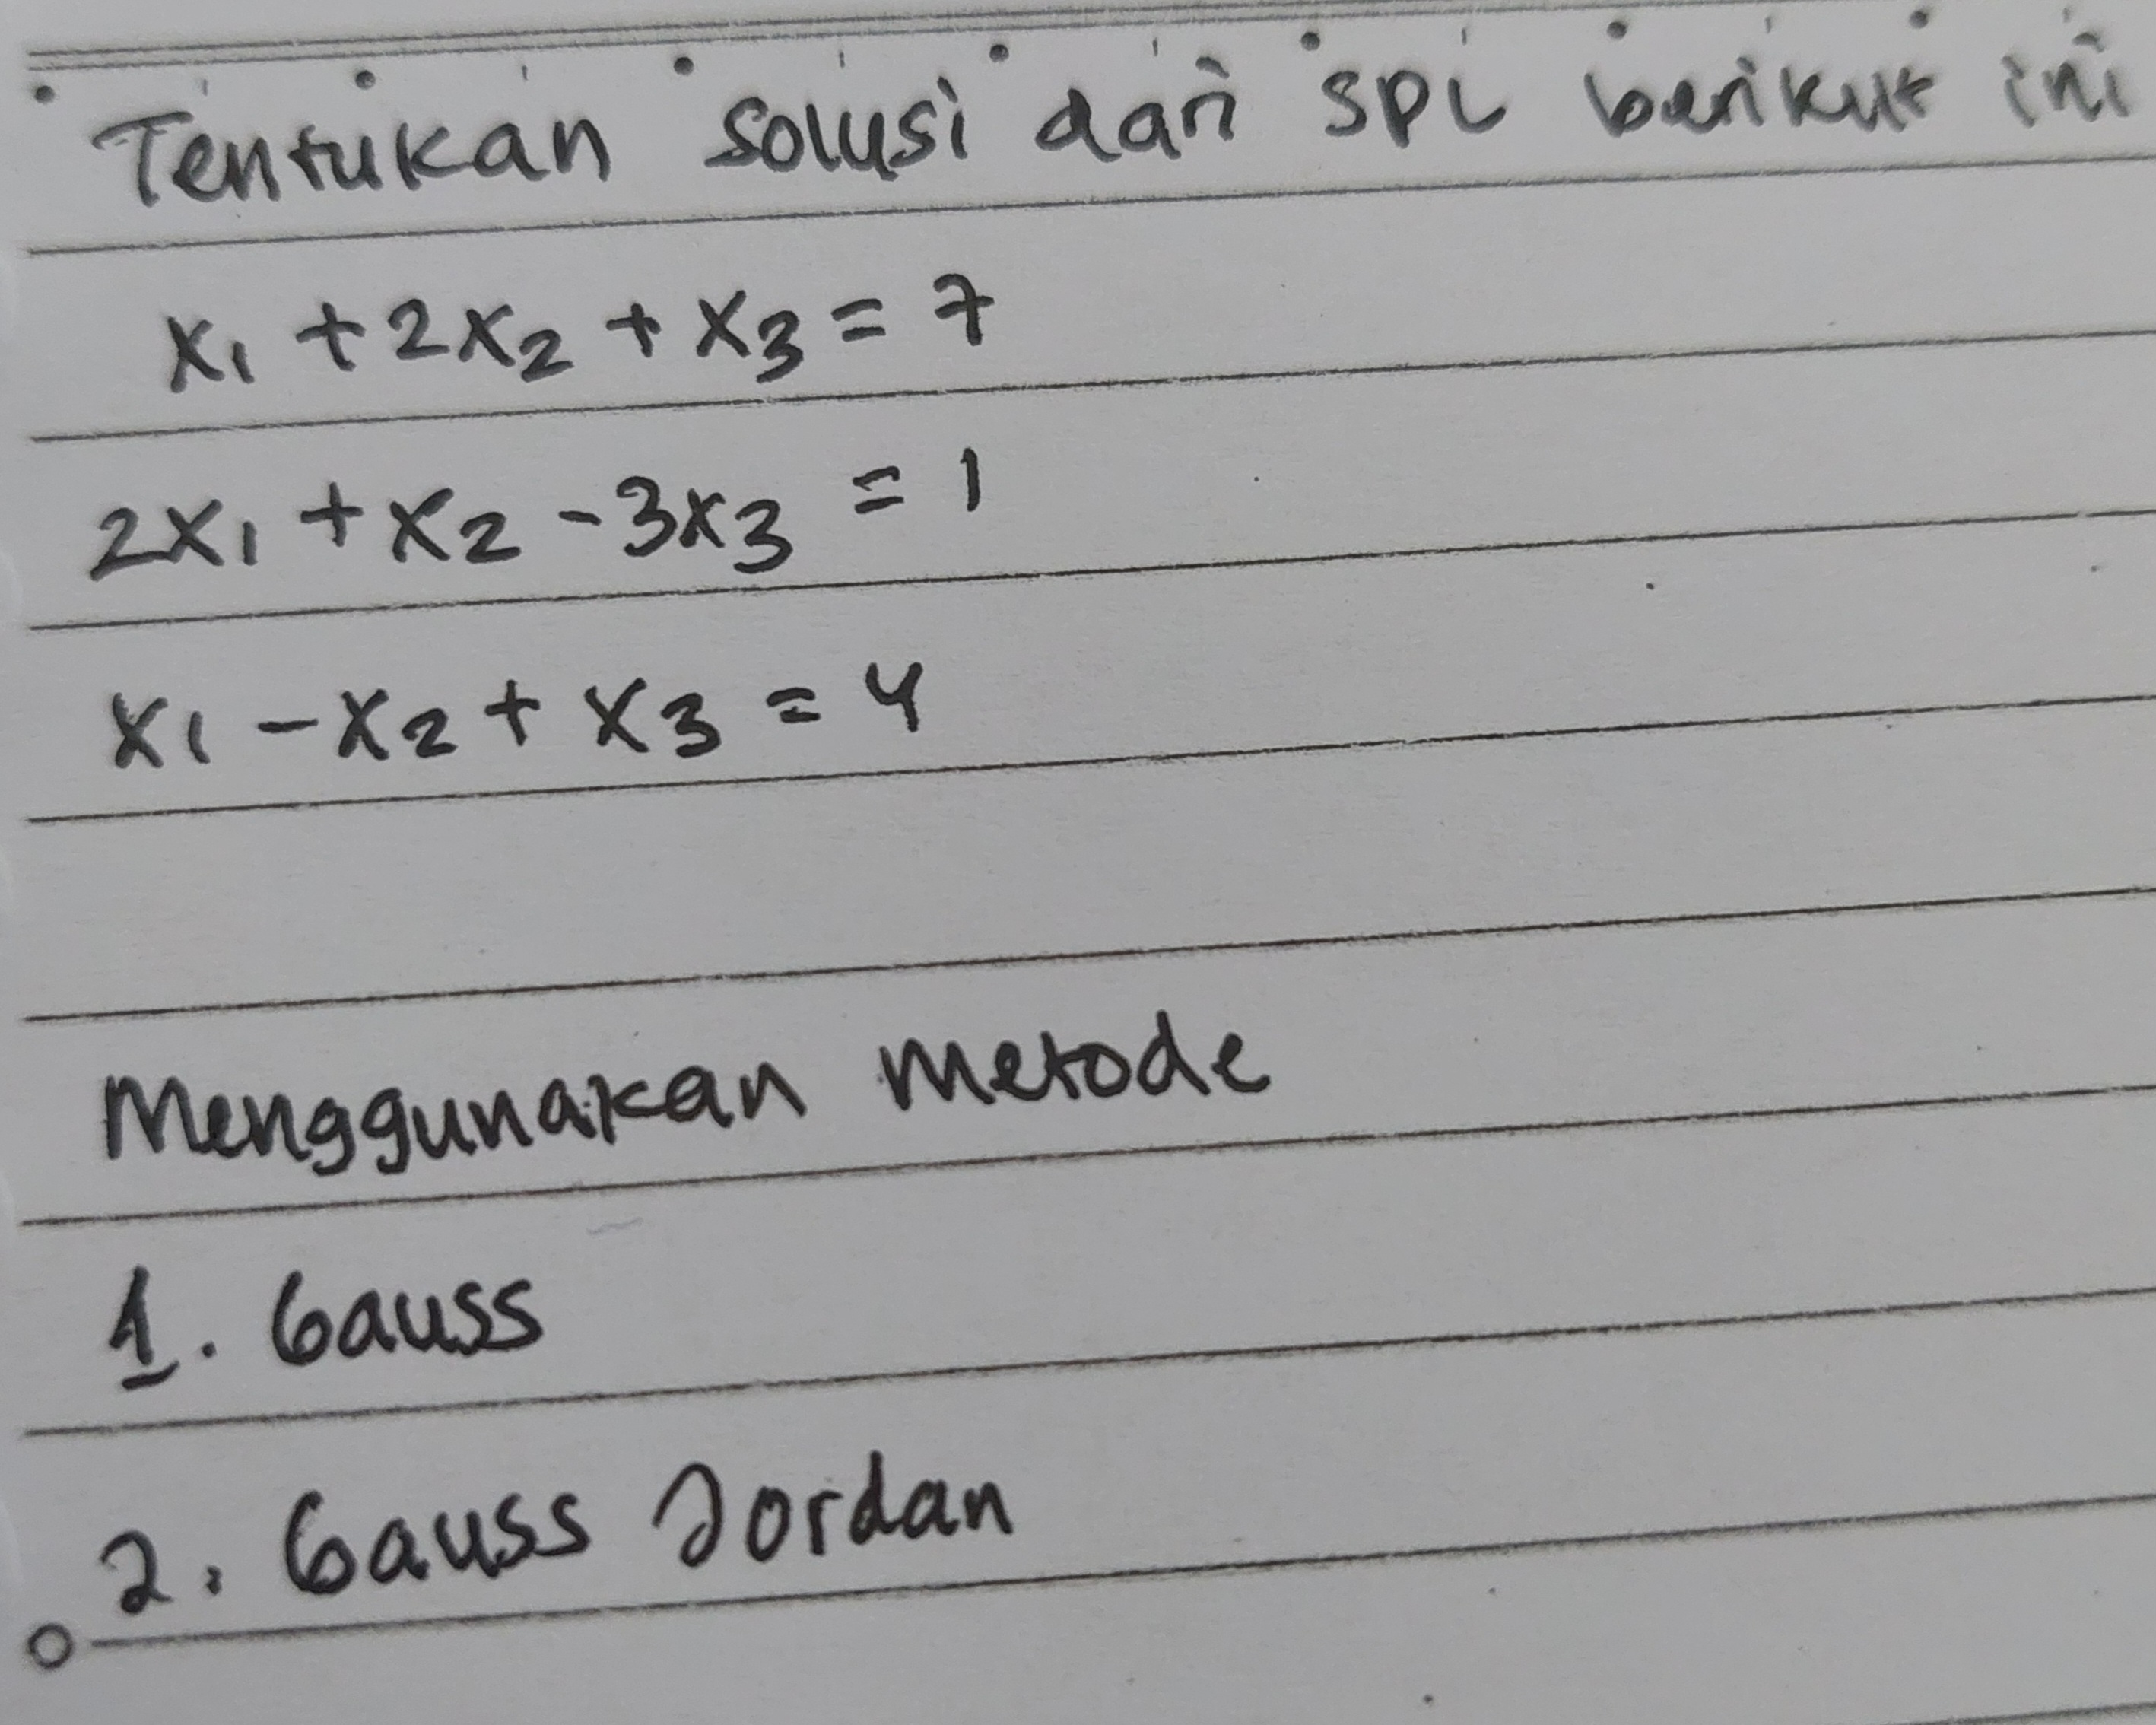 Tentukan solusi dari SPL berikut ini
x₁ + 2x₂ + x₃ = 7
2x₁ + x₂ - 3x₃ = 1
x₁ - x₂ + x₃ = 4
Menggunakan metode
1. Gauss
2. Gauss Jordan